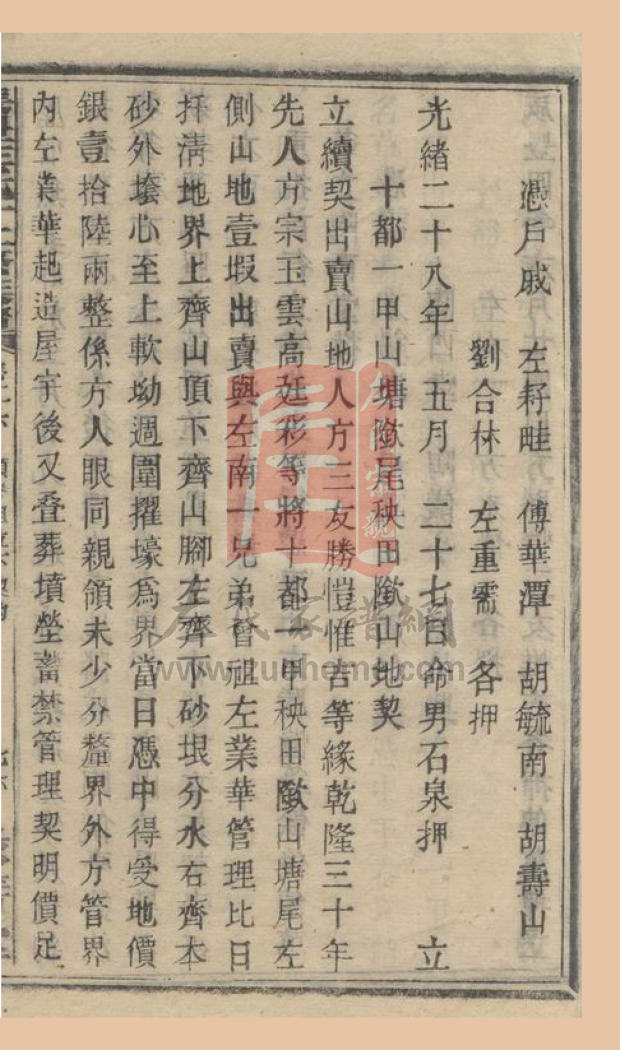 憑戶戚　左籽畦　傅華潭　胡毓南　胡壽山
劉合林　左重需　各押
光緒二十八年　五月　二十七日命男石泉押　立
十都一甲山塘㘰尾秧田㘰山地契
立續契出賣山地人方三友勝愷惟吉等緣乾隆三十年
先人方宗玉雲高廷彩等將十都一甲秧田㘰山塘尾左
側山地壹嘏出賣與左南一兄弟曾祖左業華管理比日
扦淸地界上齊山頂下齊山腳左齊下砂垠分水右齊本
砂外墖心至上軟坳週圍擢壕爲界當日憑中得受地價
銀壹拾陸兩整係方人眼同親領未少分釐界外方管界
內左業華起造屋宇後又叠葬墳塋蓄禁管理契明價足
www.zuphome.com